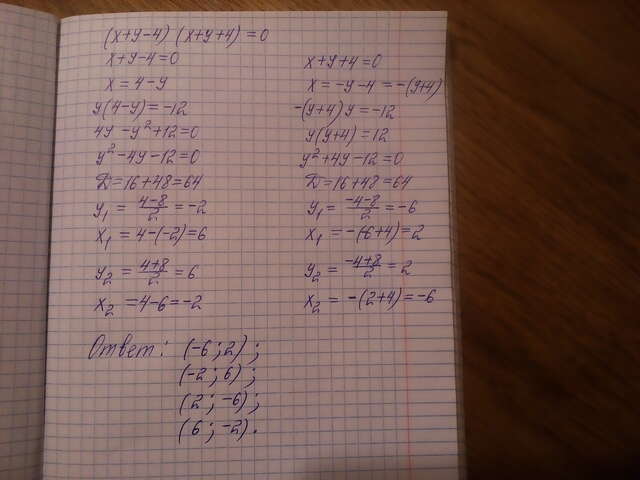 (x+y-4)(x+y+4)=0
x+y-4=0
x=4-y
y(4-y)=-12
4y-y²+12=0
y²-4y-12=0
D=16+48=64
y₁ = (4-8)/2 = -2
x₁ = 4-(-2)=6
y₂ = (4+8)/2 = 6
x₂ = 4-6=-2
x+y+4=0
x=-y-4=-(y+4)
-(y+4)y=-12
y(y+4)=12
y²+4y-12=0
D=16+48=64
y₁ = (-4-8)/2 = -6
x₁ = -(-6+4)=2
y₂ = (-4+8)/2 = 2
x₂ = -(2+4)=-6
Ответ: (-6;2);
(-2;6);
(2;-6);
(6;-2).